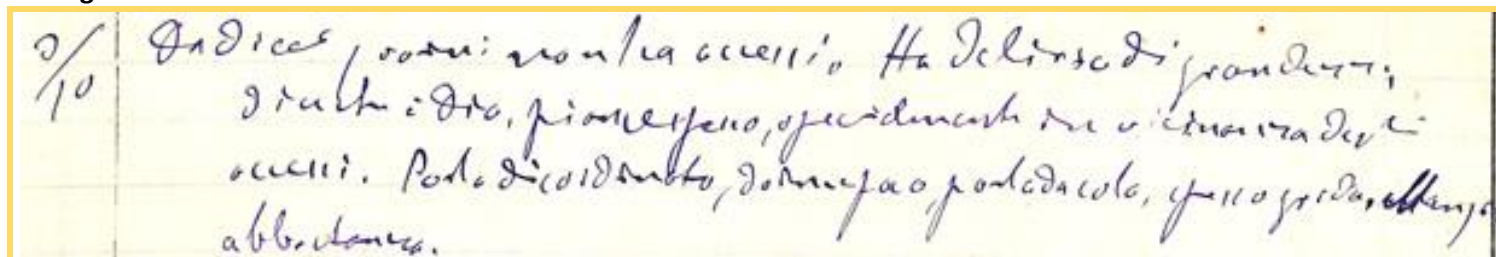 9/10 Da dieci giorni non ha accessi. Ha delirio di grandezza;
dice che è Dio, piange spesso, specialmente in vicinanza degli
accessi. Parla disordinato, dorme poco, parla da sola, spesso grida, Mangia
abbastanza.